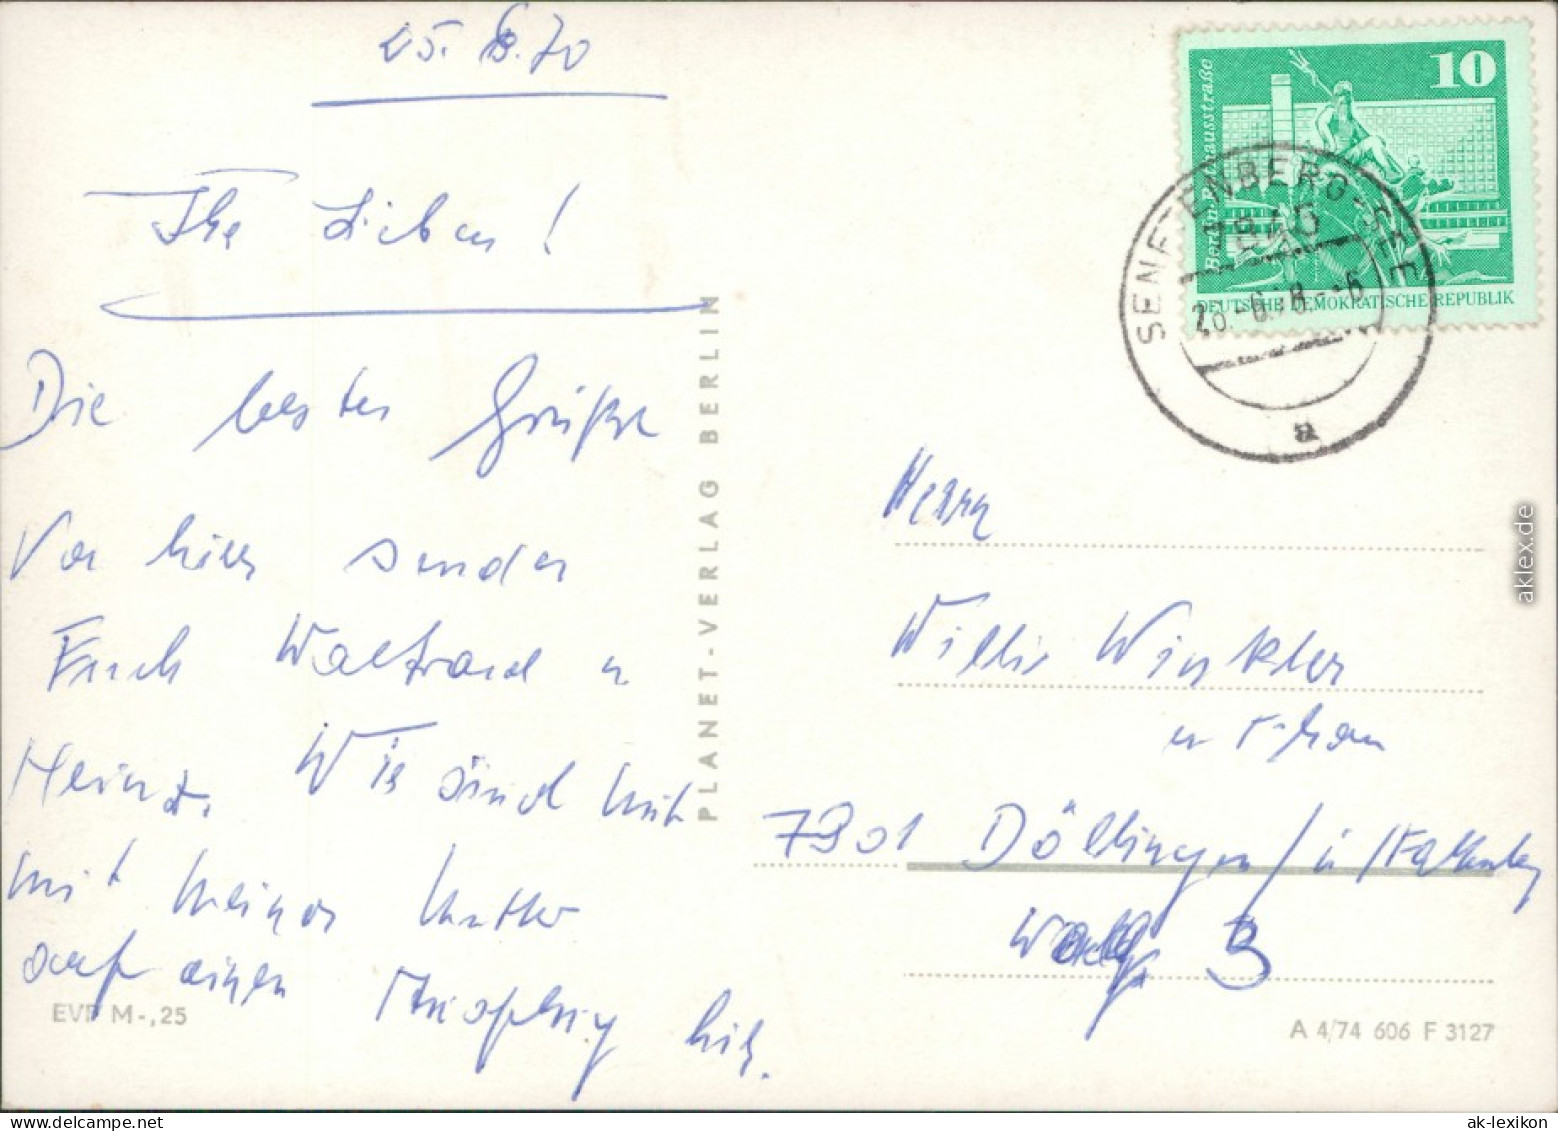 25. 6. 70
Ihr Lieben!
Die besten Grüße
Von hier senden
Euch Waltraud u
Heinz. Wir sind
mit meiner Mutter
auf einen
hier.
PLANET-VERLAG BERLIN
EVP M -,25
10
Berlin Rathausstraße
DEUTSCHE DEMOKRATISCHE REPUBLIK
SENFTENBERG-SEE
a
Herrn
Willi Winkler
u
7901 Döllingen /
3
A 4/74 606 F 3127
aklex.de
ak-lexikon